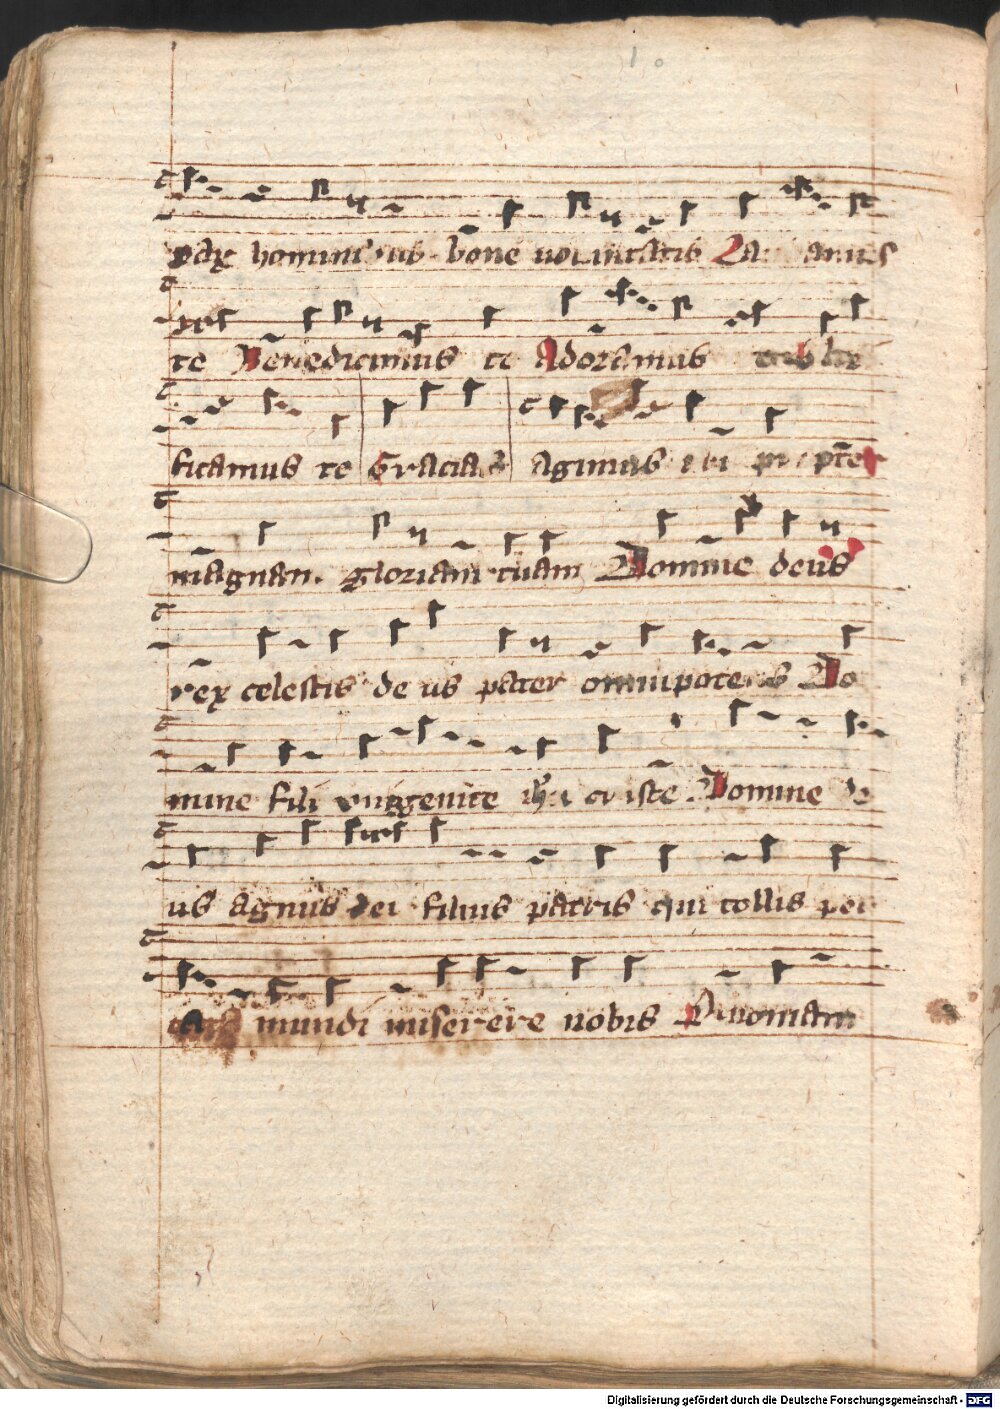 pax hominibus bone voluntatis Laudamus
te Benedicimus te Adoramus
ficamus te Gracias agimus tibi propter
magnam gloriam tuam Domine deus
rex celestis de us pater omnipotens Do
mine fili unigenite criste Domine de
us agnus dei filius patris qui tollis pec
cata mundi miserere nobis Quoniam
Digitalisierung gefördert durch die Deutsche Forschungsgemeinschaft - DFG